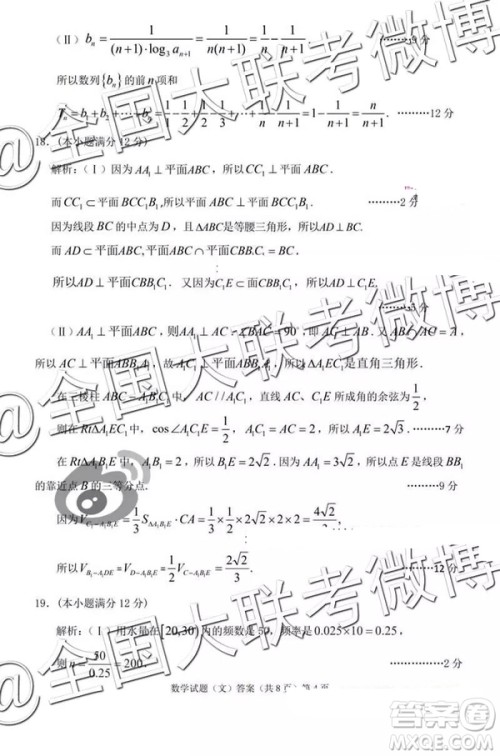 (Ⅱ) bₙ = 1/((n+1)·log₃aₙ₊₁) = 1/(n(n+1)) = 1/n − 1/(n+1) ………9 分
所以数列{bₙ}的前n项和
Tₙ = b₁+b₂+…+bₙ = 1/1 − 1/2 + 1/2 − 1/3 + … + 1/n − 1/(n+1) = 1 − 1/(n+1) = n/(n+1). ………12 分
18. (本小题满分 12 分)
解析:(Ⅰ)因为 AA₁⊥平面ABC, 所以 CC₁⊥平面ABC.
而 CC₁⊂平面 BCC₁B₁,所以平面 ABC⊥平面 BCC₁B₁. ………2 分
因为线段 BC 的中点为 D, 且ΔABC是等腰三角形, 所以 AD⊥BC.
而 AD⊂平面ABC, 平面ABC∩平面CBB₁C₁=BC,
所以AD⊥平面CBB₁C₁. 又因为C₁E⊂面CBB₁C₁, 所以AD⊥C₁E.
(Ⅱ) AA₁⊥平面ABC, 则AA₁⊥AC. =90°, 即 又AB∩AA₁=A,
所以 AC⊥平面ABB₁A₁, 故A₁C₁⊥平面ABB₁A₁, 所以ΔA₁EC₁是直角三角形.
在三棱柱 ABC−A₁B₁C₁中, AC//A₁C₁, 直线 AC₁ C₁E 所成角的余弦为1/2,
则在RtΔA₁EC₁中, cos∠A₁C₁E=1/2, A₁C₁=AC=2, 所以A₁E=2√3. ………7 分
在RtΔA₁B₁E 中, A₁B₁=2, 所以 B₁E=2√2. 因为AA₁=3√2, 所以点 E 是线段 BB₁
的靠近点 B 的三等分点. ………9 分
因为V_{C−A₁B₁E}=1/3 S_{ΔA₁B₁E}·CA=1/3×1/2×2√2×2×2=4√2/3,
所以V_{B₁−A₁DE}=V_{D−A₁B₁E}=1/2 V_{C−A₁B₁E}=2√2/3. ………12 分
19. (本小题满分 12 分)
解析:(Ⅰ)用水量在[20,30)内的频数是 50, 频率是 0.025×10=0.25,
则 n=50/0.25=200. ………2 分
数学试题(文)答案(共 8 页)第 4 页
@全国大联考微博
@全国大联考微博
@全国大联考微博
答案圈
MXQE.COM